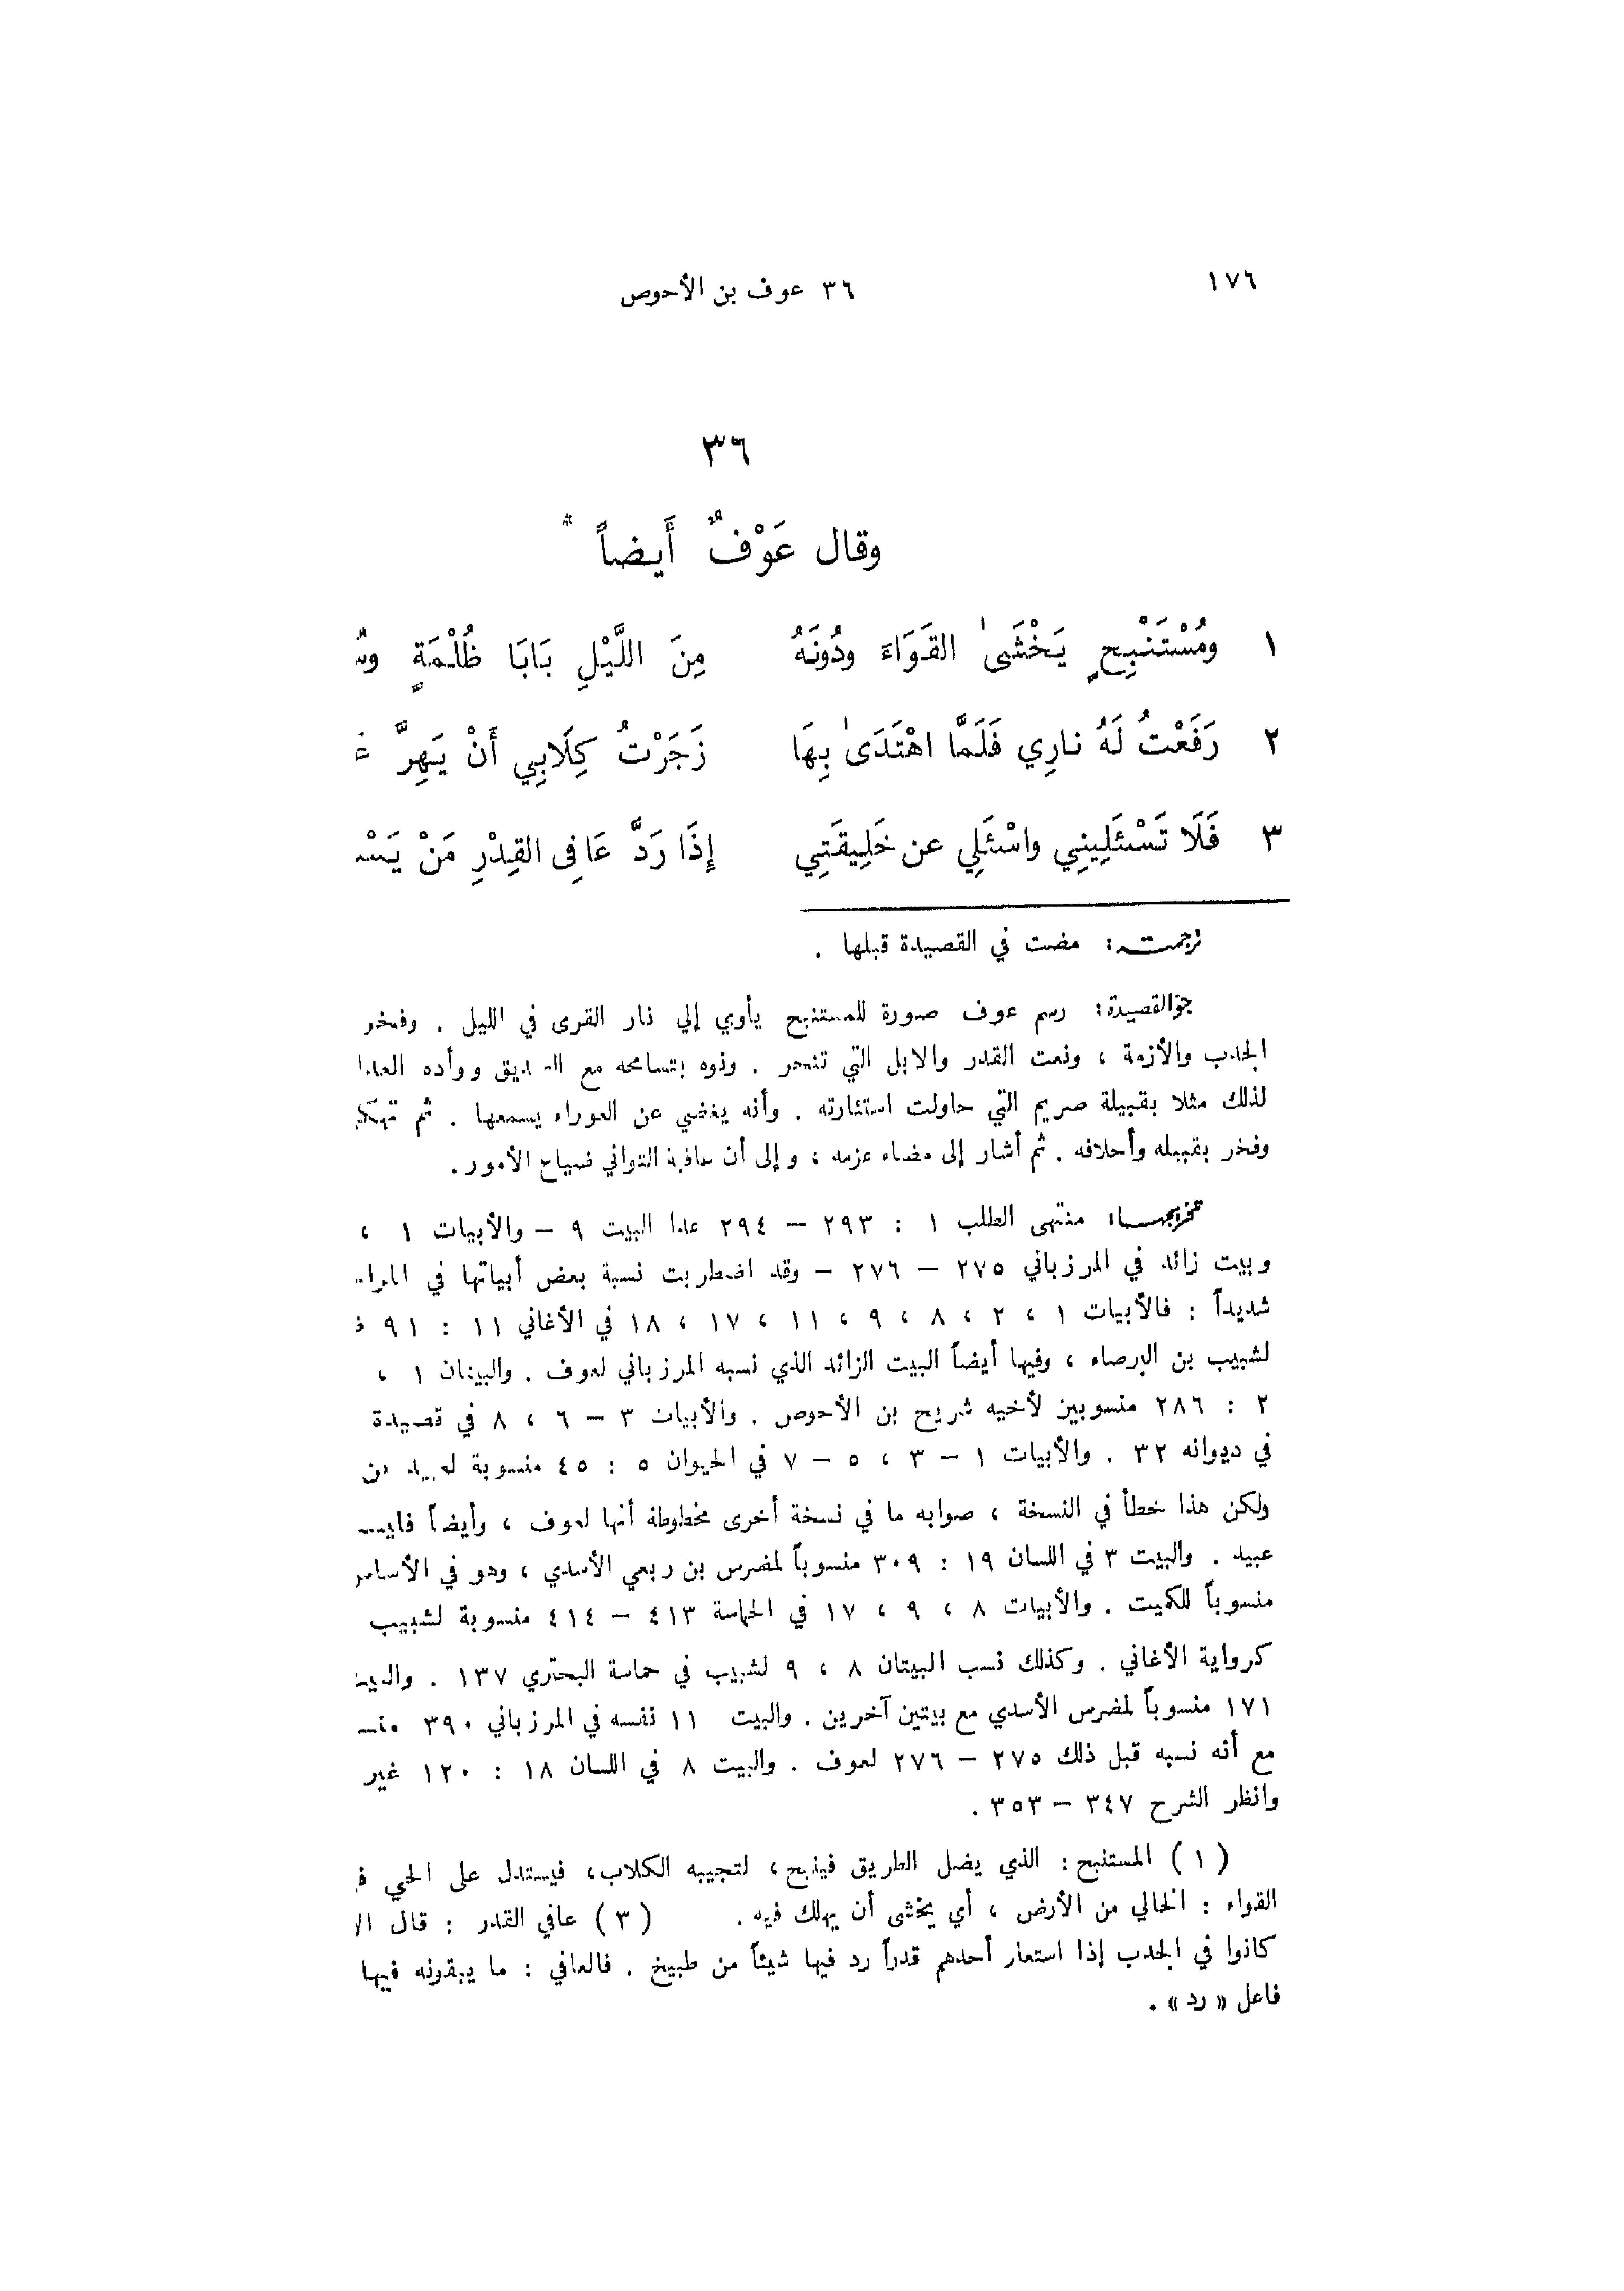 ١٧٦
٣٦ عوف بن الأحوص
٣٦
وقال عَوْفٌ أَيضاً *
١ ومُسْتَنْبِحٍ يَخْشَى القَوَاءَ ودُونَهُ مِنَ اللَّيْلِ بَابَا ظُلْمَةٍ
٢ رَفَعْتُ لَهُ نارِي فَلَمَّا اهْتَدَى بِهَا زَجَرْتُ كِلَابِي أَنْ يَهِرَّ
٣ فَلَا تَسْئَلِينِي واسْئَلِي عن خَلِيقَتِي إِذَا رَدَّ عَافِي القِدْرِ مَنْ
ترجمته: مضت في القصيدة قبلها .
جو القصيدة: رسم عوف صورة للمستنبح يأوي إلي نار القرى في الليل . وفخر
الجدب والأزمة ، ونعت القدر والابل التي تنحر . ونوه بتسامحه مع وأده
لذلك مثلا بقبيلة صريم التي حاولت استثارته . وأنه يغضي عن العوراء يسمعها . ثم
وفخر بقبيله وأحلافه . ثم أشار إلى مضاء عزمه ، وإلى أن عاقبة التواني ضياع الأمور.
تخريجها: منتهى الطلب ١ : ٢٩٣ – ٢٩٤ عدا البيت ٩ – والأبيات ١ ،
وبيت زائد في المرزباني ٢٧٥ – ٢٧٦ – وقد اضطربت نسبة بعض أبياتها في
شديداً : فالأبيات ١ ، ٢ ، ٨ ، ٩ ، ١١ ، ١٧ ، ١٨ في الأغاني ١١ : ٩١
لشبيب بن البرصاء ، وفيها أيضاً البيت الزائد الذي نسبه المرزباني لعوف . والبيتان ١ ،
٢ : ٢٨٦ منسوبين لأخيه شريح بن الأحوص . والأبيات ٣ – ٦ ، ٨ في قصيدة
في ديوانه ٣٢ . والأبيات ١ – ٣ ، ٥ – ٧ في الحيوان ٥ : ٤٥ منسوبة
ولكن هذا خطأ في النسخة ، صوابه ما في نسخة أخرى مخطوطة أنها لعوف ، وأيضاً
عبيد . والبيت ٣ في اللسان ١٩ : ٣٠٩ منسوباً لمضرس بن ربعي الأسدي ، وهو في
منسوباً للكميت . والأبيات ٨ ، ٩ ، ١٧ في الحماسة ٤١٣ – ٤١٤ منسوبة لشبيب
كرواية الأغاني . وكذلك نسب البيتان ٨ ، ٩ لشبيب في حماسة البحتري ١٣٧ .
١٧١ منسوباً لمضرس الأسدي مع بيتين آخرين . والبيت ١١ نفسه في المرزباني ٣٩٠
مع أنه نسبه قبل ذلك ٢٧٥ – ٢٧٦ لعوف . والبيت ٨ في اللسان ١٨ : ١٢٠ غير
وانظر الشرح ٣٤٧ – ٣٥٣ .
( ١ ) المستنبح : الذي يضل الطريق فينبح ، لتجيبه الكلاب ، فيستدل على الحي
القواء : الخالي من الأرض ، أي يخشى أن يهلك فيه . ( ٣ ) عافي القدر : قال
كانوا في الجدب إذا استعار أحدهم قدراً رد فيها شيئاً من طبيخ . فالعافي : ما يبقونه فيها
فاعل « رد » .